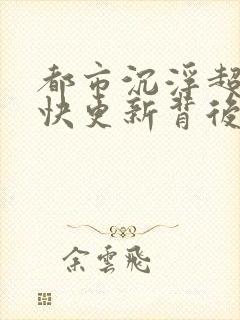 都市沉浮超
快更新背後
余雲飛